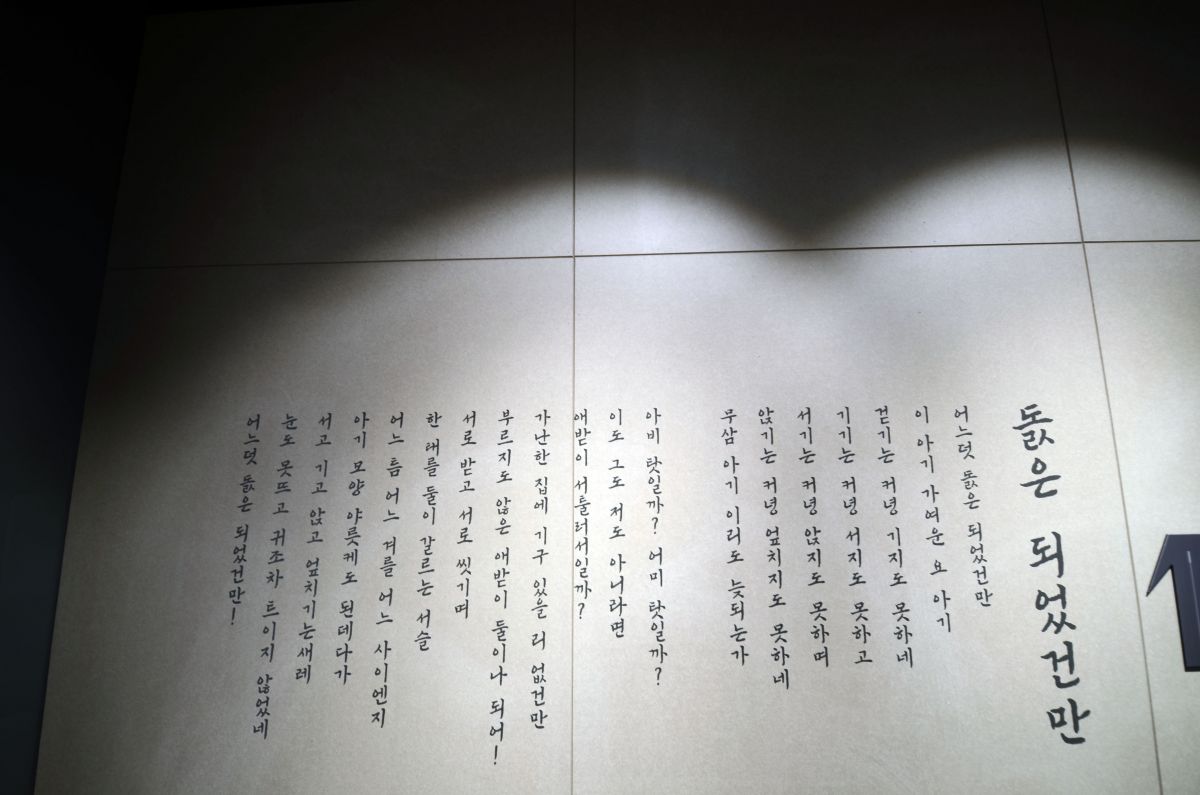 돐은 되었건만
어느덧 돐은 되었건만
이 아기 가여운 요 아기
걷기는 커녕 기지도 못하네
기기는 커녕 서지도 못하고
서기는 커녕 앉지도 못하며
앉기는 커녕 엎치지도 못하네
무삼 아기 이리도 늦되는가
아비 탓일까? 어미 탓일까?
이도 그도 저도 아니라면
애받이 서툴러서일까?
가난한 집에 기구 있을 리 없건만
부르지도 않은 애받이 둘이나 되어!
서로 받고 서로 씻기며
한 태를 둘이 갈르는 서슬
어느 틈 어느 겨를 어느 사이엔지
아기 모양 야릇케도 된데다가
서고 기고 앉고 엎치기는새레
눈도 못뜨고 귀조차 트이지 않었네
어느덧 돐은 되었건만!